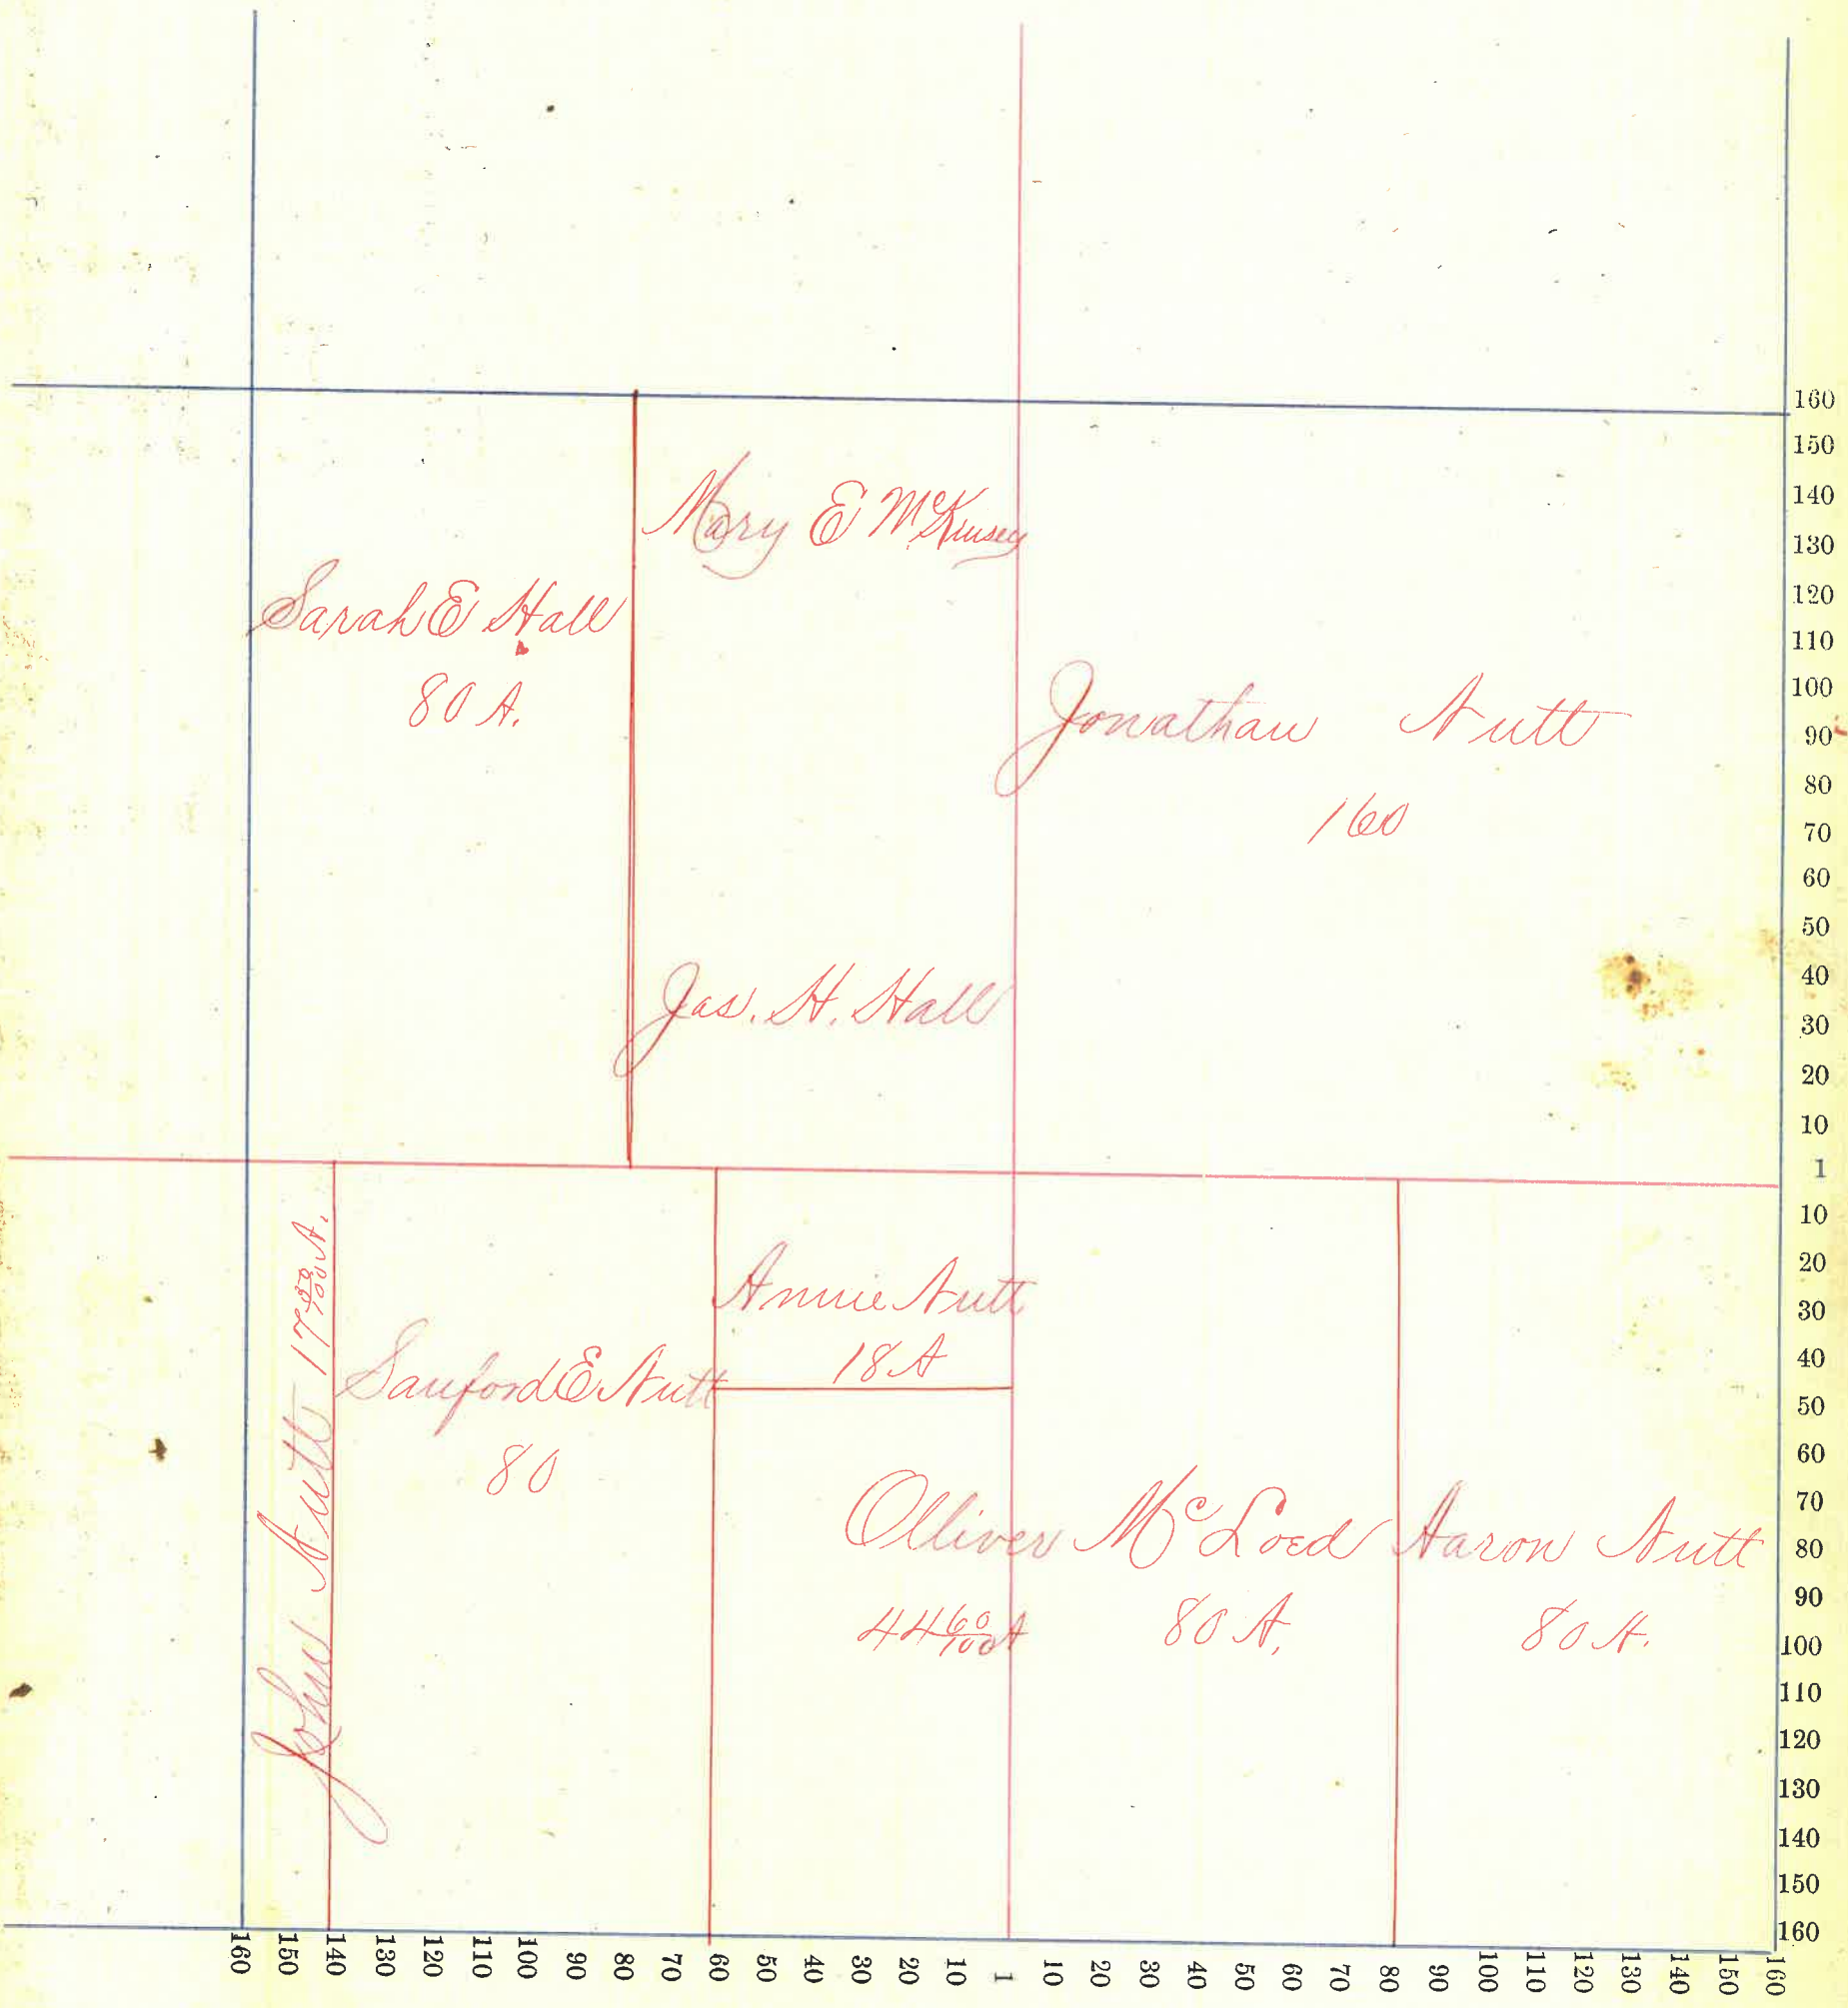 Mary E McKinsey
Sarah E Hall
80 A.
Jonathan Nutt
160
Jas. H. Hall
John Nutt 17 50/100 A.
Annie Nutt
18 A
Sanford E Nutt
80
Olliver McLoed
44 60/100 A
80 A.
Aaron Nutt
80 A.
160
150
140
130
120
110
100
90
80
70
60
50
40
30
20
10
1
10
20
30
40
50
60
70
80
90
100
110
120
130
140
150
160
160 150 140 130 120 110 100 90 80 70 60 50 40 30 20 10 1 10 20 30 40 50 60 70 80 90 100 110 120 130 140 150 160